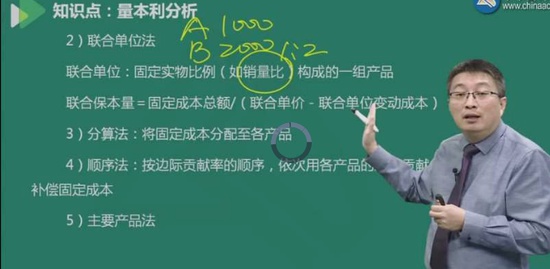 www.chinaac
知识点：量本利分析
A 1000
2）联合单位法
B 2000 1:2
联合单位：固定实物比例（如销量比）构成的一组产品
联合保本量=固定成本总额/（联合单价-联合单位变动成本）
3）分算法：将固定成本分配至各产品
4）顺序法：按边际贡献率的顺序，依次用各产品的 贡献
补偿固定成本
5）主要产品法